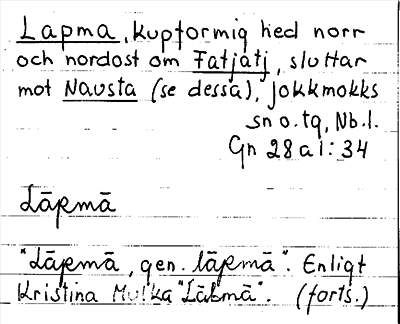 Lapma, kupformig hed norr
och nordost om Fatjatj, sluttar
mot Nausta (se dessa), Jokkmokks
sn o. tg, Nb. l.
Gn 28 a 1:34
Lāpmā
"Lāpmā, gen. lāpmā". Enligt
Kristina Mulka "Lākmā". (forts.)